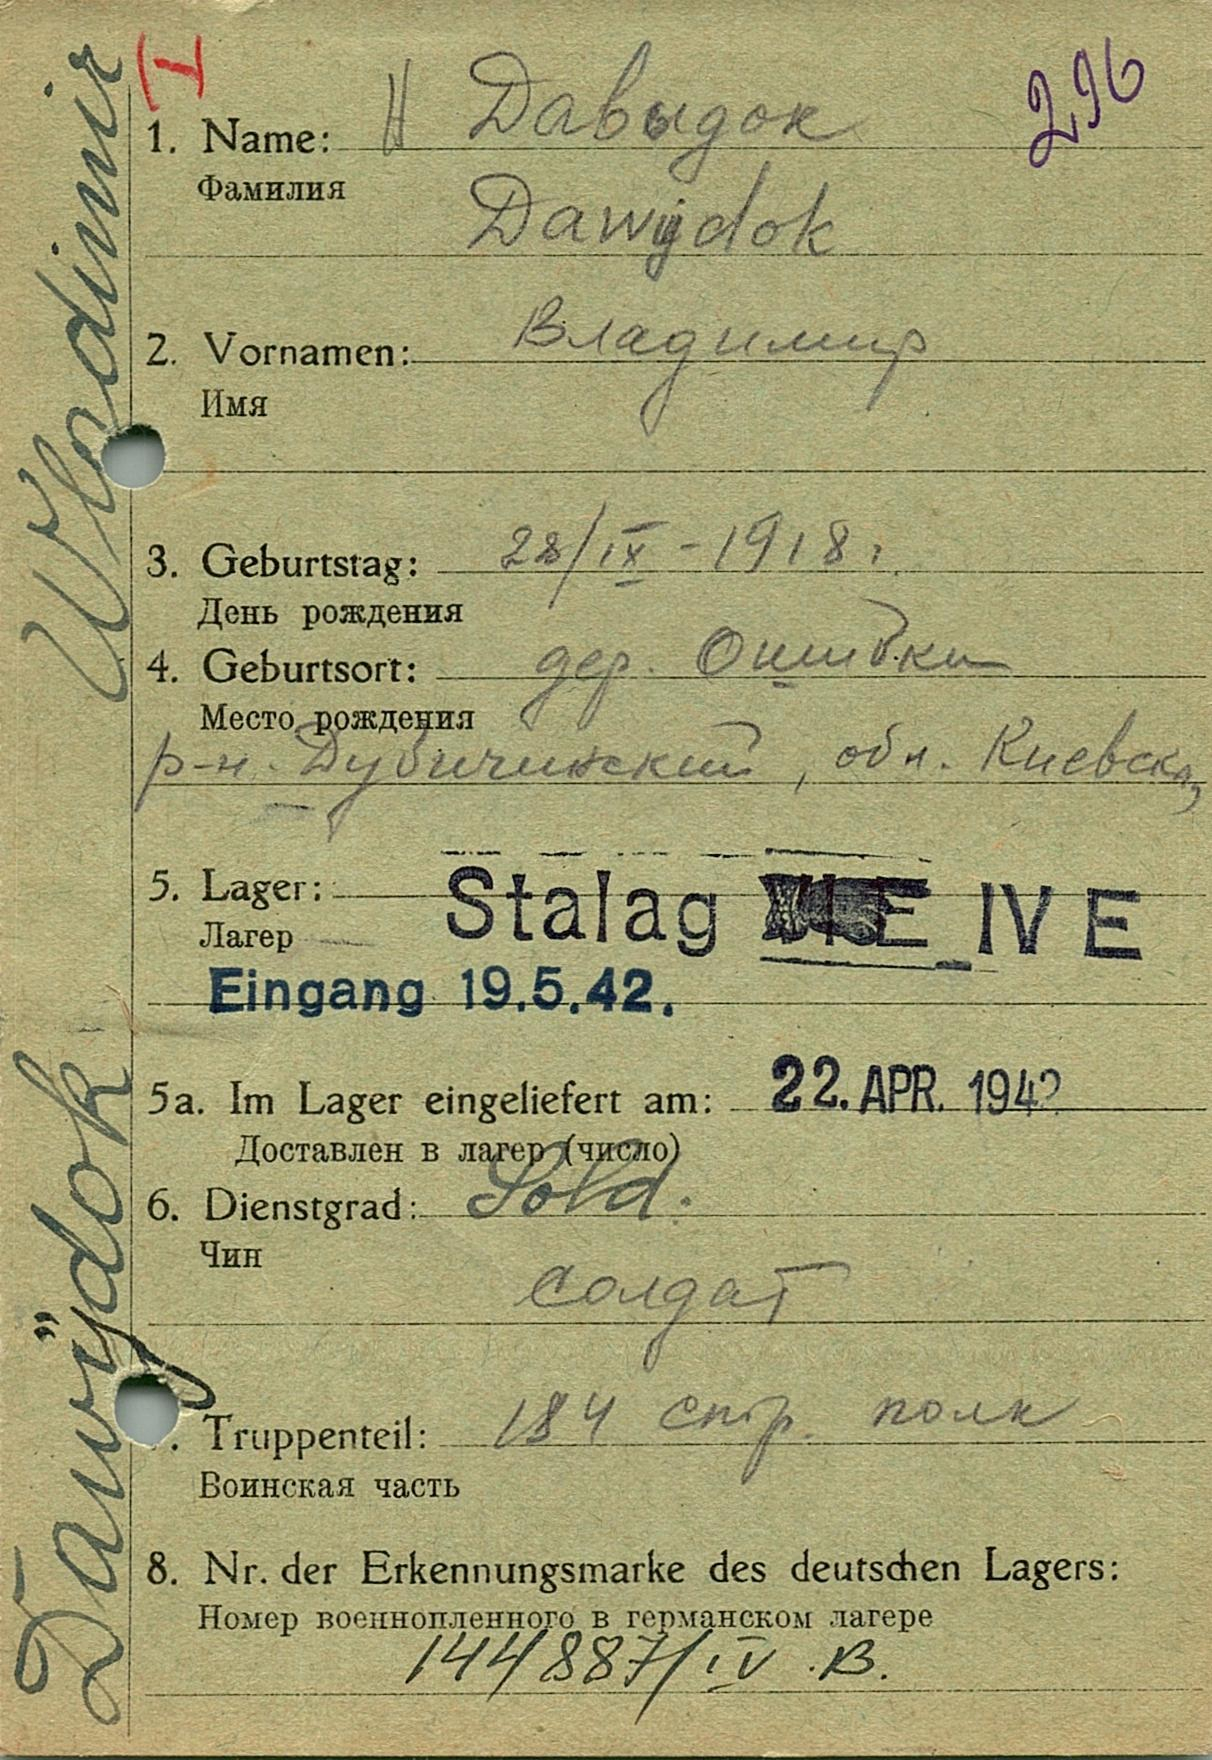 I
296
1. Name: Давыдок
Фамилия
Dawÿdok
2. Vornamen: Владимир
Имя
3. Geburtstag: 28/IX - 1918 г.
День рождения
4. Geburtsort: дер.
Место рождения
р-н. Дубичинский, обл. Киевск,
5. Lager: Stalag IV E
Лагер
Eingang 19.5.42.
5a. Im Lager eingeliefert am: 22. APR. 1942
Доставлен в лагер (число)
6. Dienstgrad: Sold.
Чин
солдат
. Truppenteil: 184 стр. полк
Воинская часть
8. Nr. der Erkennungsmarke des deutschen Lagers:
Номер военнопленного в германском лагере
144887/IV .B.
Dawÿdok Wladimir